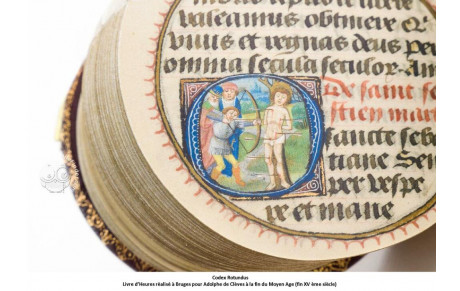 valeamus obtinere Qui
vivis et regnas deus per
omnia secula seculor. am
De saint se
stien mar
sancte seba
tiane Sem
per vespe
re et mane
Codex Rotundus
Livre d'Heures réalisé à Bruges pour Adolphe de Clèves à la fin du Moyen Age (fin XV ème siècle)